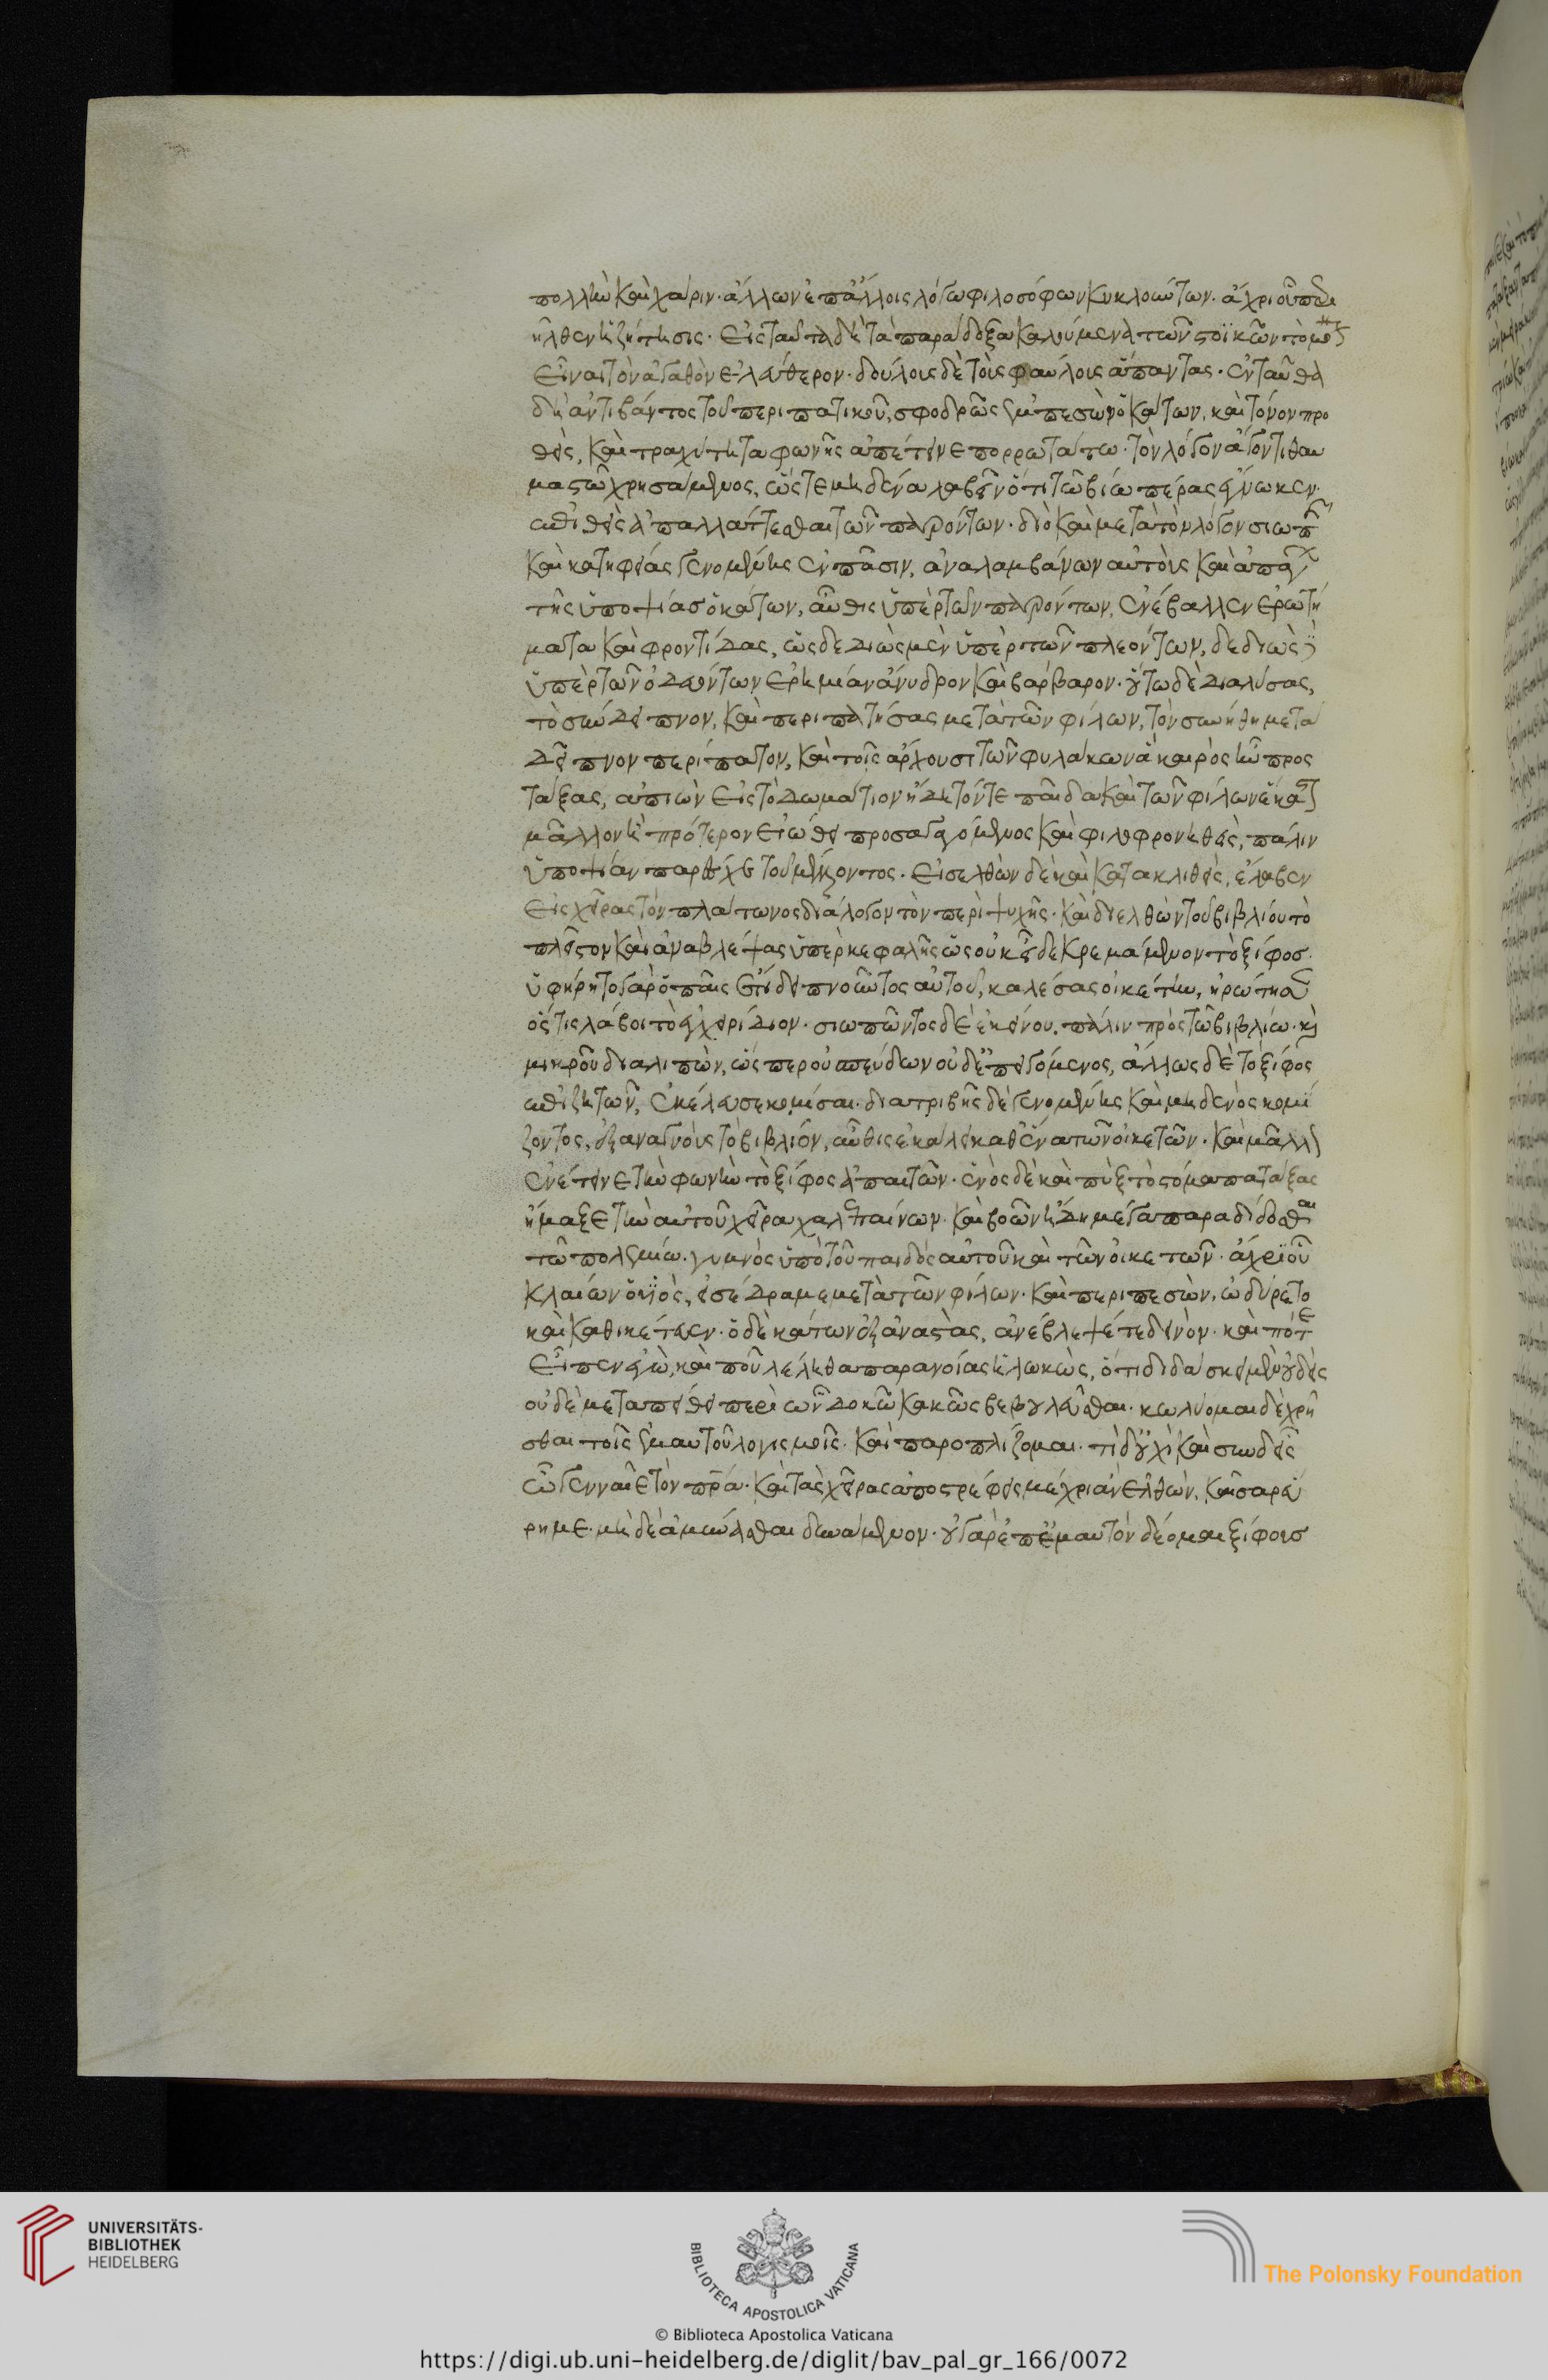 πολλὴν καὶ χάριν· ἄλλων ἐπ' ἄλλοις λόγων φιλοσόφων κυκλούντων· ἄχρι οὗ περι
ῆλθεν ἡ ζήτησις· εἰς ταῦτα δὴ τὰ παράδοξα καλούμενα τῶν στοϊκῶν τὸ μόνον
εἶναι τὸν ἀγαθὸν ἐλεύθερον· δούλους δὲ τοὺς φαύλους ἅπαντας· ἐνταῦθα
δὴ ἀντιβάντος τοῦ περιπατικοῦ, σφοδρῶς ἐμπεσὼν ὁ κάτων, καὶ τόνον προ
θεὶς, καὶ τραχύτητα φωνῆς ἀπέτεινε πορρωτάτω· τὸν λόγον ἀγῶνι θαυ
μαστῶ χρησάμενος, ὥστε μηδένα λαθεῖν ὅτι τῶ βίω πέρας ἔγνωκεν
ἐπιθεὶς ἀπαλλάττεσθαι τῶν παρόντων· διὸ καὶ μετὰ τὸν λόγον σιωπῆς
καὶ κατηφείας γενομένης ἐν πᾶσιν, ἀναλαμβάνων αὐτοὺς καὶ ἀπάγων
τῆς ὑποψίας ὁ κάτων, αὖθις ὑπὲρ τῶν παρόντων, ἐνέβαλλεν ἐρωτή
ματα καὶ φροντίδας, ὡς δεδιὼς μὲν ὑπὲρ τῶν πλεόντων, δεδιὼς δὲ
ὑπὲρ τῶν ὁδευόντων ἐρημίαν ἄνυδρον καὶ βάρβαρον· οὕτω δὲ διαλύσας,
τὸ σύνδειπνον, καὶ περιπατήσας μετὰ τῶν φίλων, τὸν συνήθη μετὰ
δεῖπνον περίπατον, καὶ τοῖς ἄρχουσι τῶν φυλάκων ἃ καιρὸς ἦν προσ
τάξας, ἀπιὼν εἰς τὸ δωμάτιον ἤδη τόν τε παῖδα καὶ τῶν φίλων ἕκαστον
μᾶλλον ἢ πρότερον εἰώθει προσαγόμενος καὶ φιλοφρονηθεὶς, πάλιν
ὑποψίαν παρέσχε τοῦ μέλλοντος· εἰσελθὼν δὲ καὶ κατακλιθεὶς, ἔλαβεν
εἰς χεῖρας τὸν πλάτωνος διάλογον τὸν περὶ ψυχῆς· καὶ διελθὼν τοῦ βιβλίου τὸ
πλεῖστον καὶ ἀναβλέψας ὑπὲρ κεφαλῆς ὡς οὐκ εἶδε κρεμάμενον τὸ ξίφος·
ὑφήρητο γὰρ ὁ παῖς ἔτι δειπνοῦντος αὐτοῦ, καλέσας οἰκέτην, ἠρώτησεν
ὅστις λάβοι τὸ ἐγχειρίδιον· σιωπῶντος δὲ ἐκείνου, πάλιν πρὸς τῶ βιβλίω· καὶ
μικρὸν διαλιπὼν, ὥσπερ οὐ σπεύδων οὐδὲ ἐπειγόμενος, ἄλλως δὲ τὸ ξίφος
ἐπιζητῶν, ἐκέλευσε κομίσαι· διατριβῆς δὲ γενομένης καὶ μηδενὸς κομί
ζοντος, ἐξαναγνοὺς τὸ βιβλίον, αὖθις ἐκάλει καθ' ἕνα τῶν οἰκετῶν· καὶ μᾶλλον
ἐνέτεινε τὴν φωνὴν τὸ ξίφος ἀπαιτῶν· ἑνὸς δὲ καὶ πὺξ τὸ στόμα πατάξας
ἥμαξε τὴν αὐτοῦ χεῖρα χαλεπαίνων· καὶ βοῶν ἤδη μέγα παραδίδοσθαι
τῶ πολεμίω· γυμνὸς ὑπὸ τοῦ παιδὸς αὐτοῦ καὶ τῶν οἰκετῶν· ἄχρι οὗ
κλαίων ὁ υἱὸς, εἰσέδραμε μετὰ τῶν φίλων· καὶ περιπεσὼν, ὠδύρετο
καὶ καθικέτευεν· ὁ δὲ κάτων ἐξαναστὰς, ἀνέβλεψέ τε δεινὸν· καὶ πότε
εἶπεν ἐγὼ, καὶ ποῦ λέληθα παρανοίας ἡλωκὼς, ὅτι διδάσκει μὲν οὐδεὶς
οὐδὲ μεταπείθει περὶ ὧν δοκῶ κακῶς βεβουλεῦσθαι· κωλύομαι δὲ χρῆ
σθαι τοῖς ἐμαυτοῦ λογισμοῖς· καὶ παροπλίζομαι· τί δ' οὐχὶ καὶ συνδεῖς
ὦ γενναῖε τὸν πρα· καὶ τὰς χεῖρας ἀποστρέφεις μέχρι ἂν ἐλθὼν, καῖσαρ εὕ
ρη με· μὴ δὲ ἀμύνασθαι δυνάμενον· οὐ γὰρ ἐπ' ἐμαυτὸν δέομαι ξίφους
UNIVERSITÄTS-
BIBLIOTHEK
HEIDELBERG
BIBLIOTECA APOSTOLICA VATICANA
The Polonsky Foundation
© Biblioteca Apostolica Vaticana
https://digi.ub.uni-heidelberg.de/diglit/bav_pal_gr_166/0072